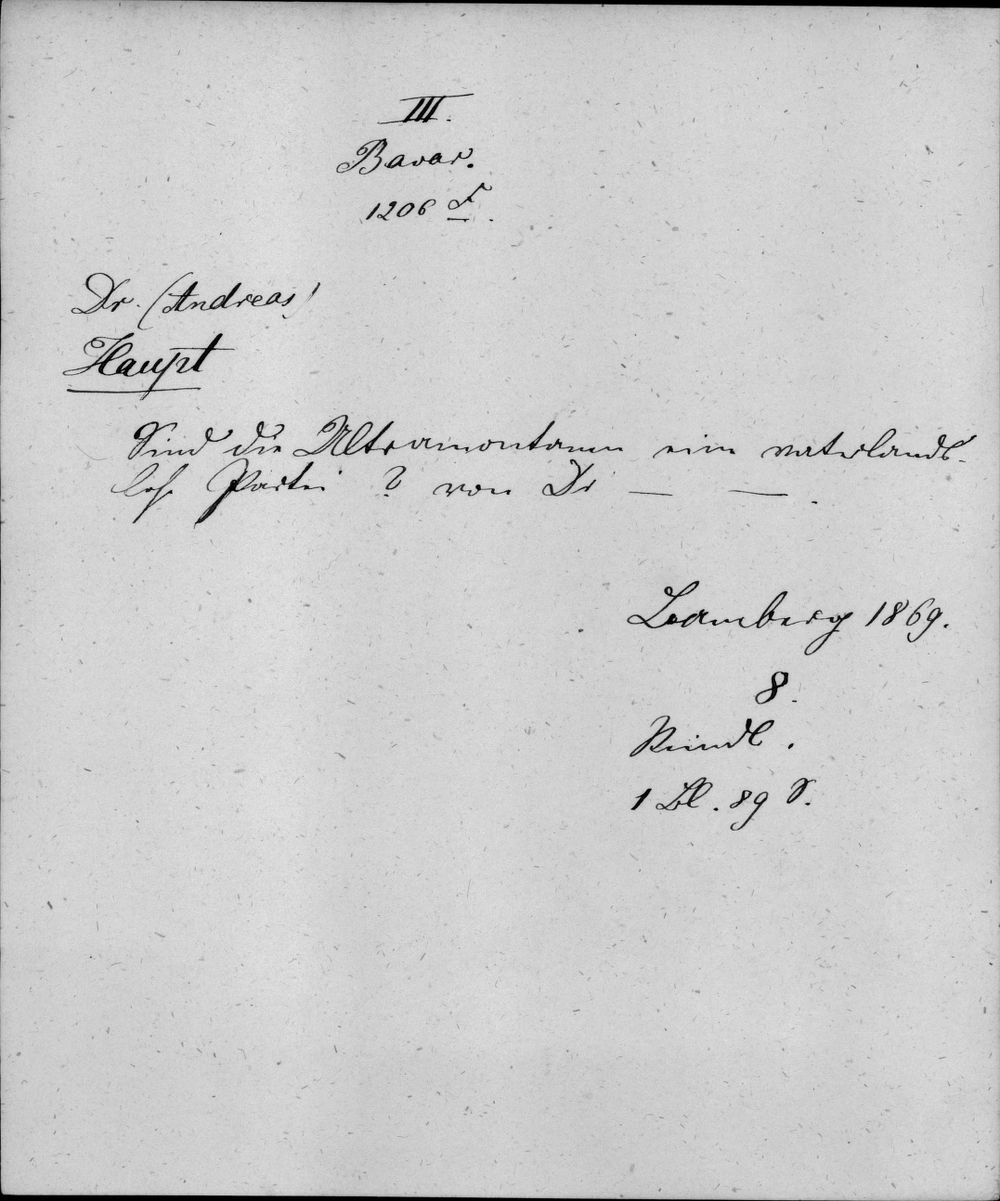 III.
Bavar.
1206 F.
Dr. (Andreas)
Haupt
Sind die Ultramontanen eine vaterlands-
lose Partei? von Dr — — .
Bamberg 1869.
8.
Reindl.
1 Bl. 89 S.